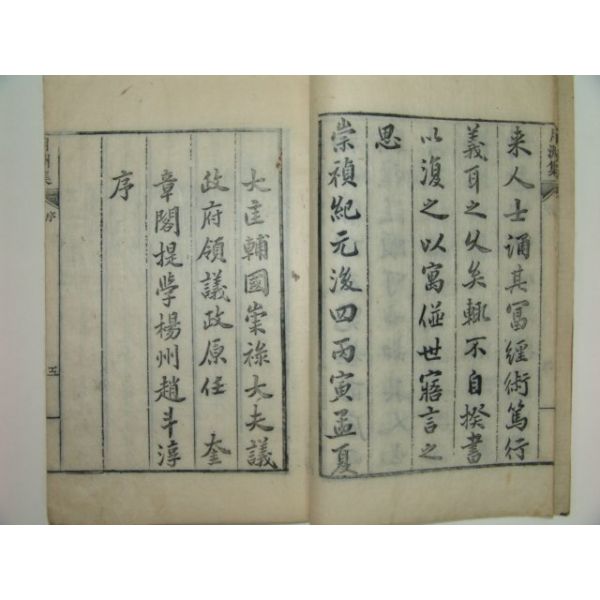 来人士誦其冨經術篤行
義耳之久矣輒不自揆書
以復之以寓偘世寤言之
思
崇禎紀元後四丙寅孟夏
大匡輔國崇祿大夫議
政府領議政原任 奎
章閣提學楊州趙斗淳
序
月洲集
序
五